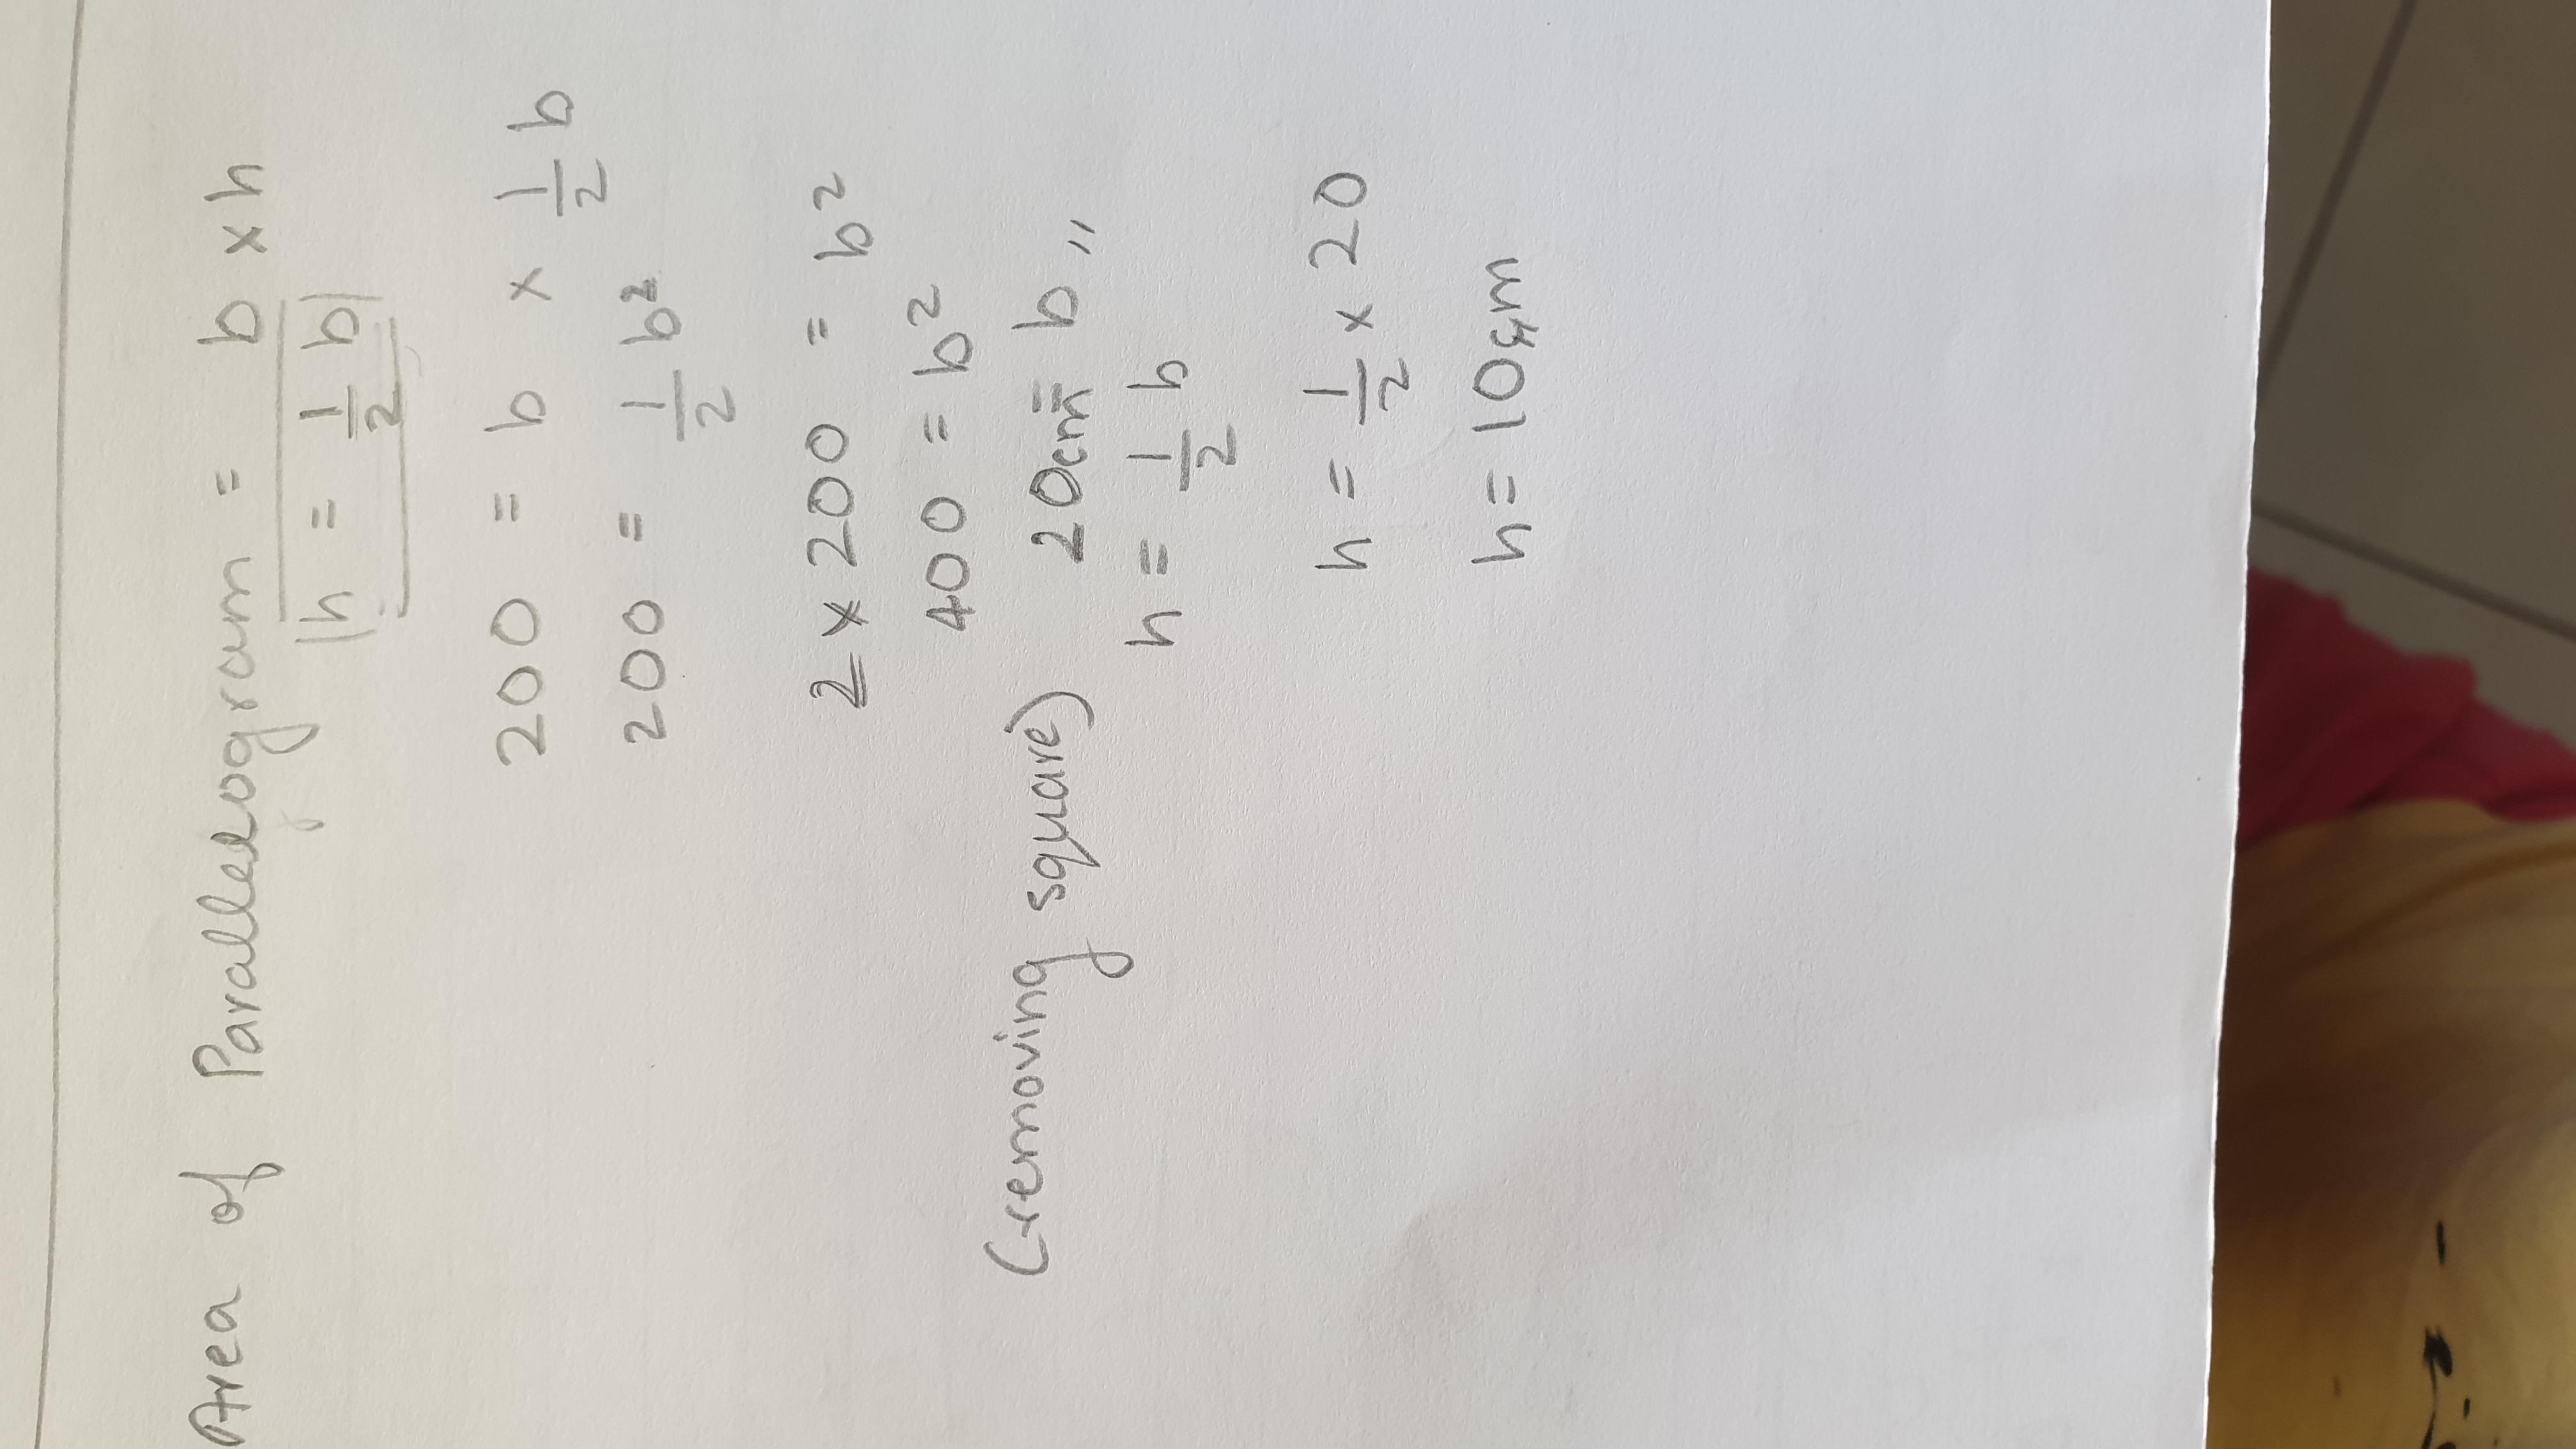 Area of Parallelogram = b × h
h = 1/2 b
200 = b × 1/2 b
200 = 1/2 b²
2 × 200 = b²
400 = b²
(removing square) 20cm = b,,
h = 1/2 b
h = 1/2 × 20
h = 10cm